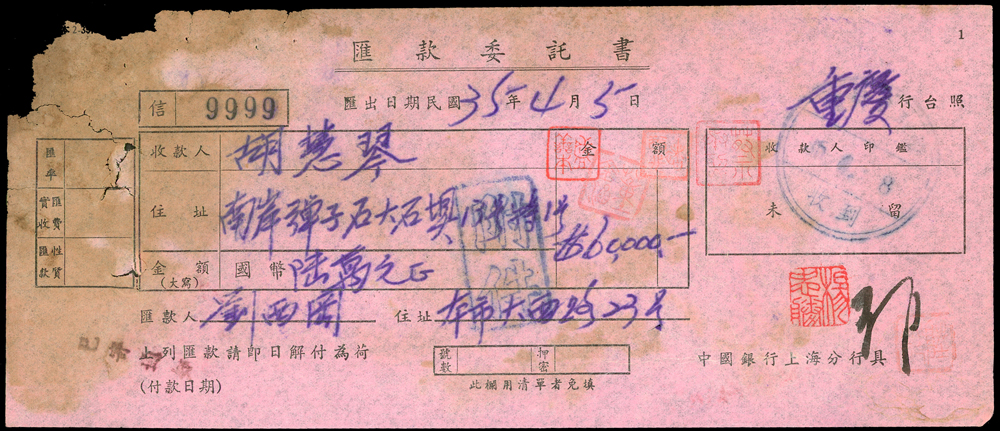 1
匯款委託書
信 9999
匯出日期民國35年4月5日
重慶行台照
匯率
實收匯費
匯款性質
收款人 胡慧琴
金額
住址 南岸彈子石大石壩
$60,000.—
金額(大寫) 國幣 陸萬元正
收款人印鑑
未留
收到
附件
匯款人 劉西園 住址 本市大西路23号
上列匯款請即日解付為荷
(付款日期)
號數 押密
此欄用清單者免填
中國銀行上海分行具